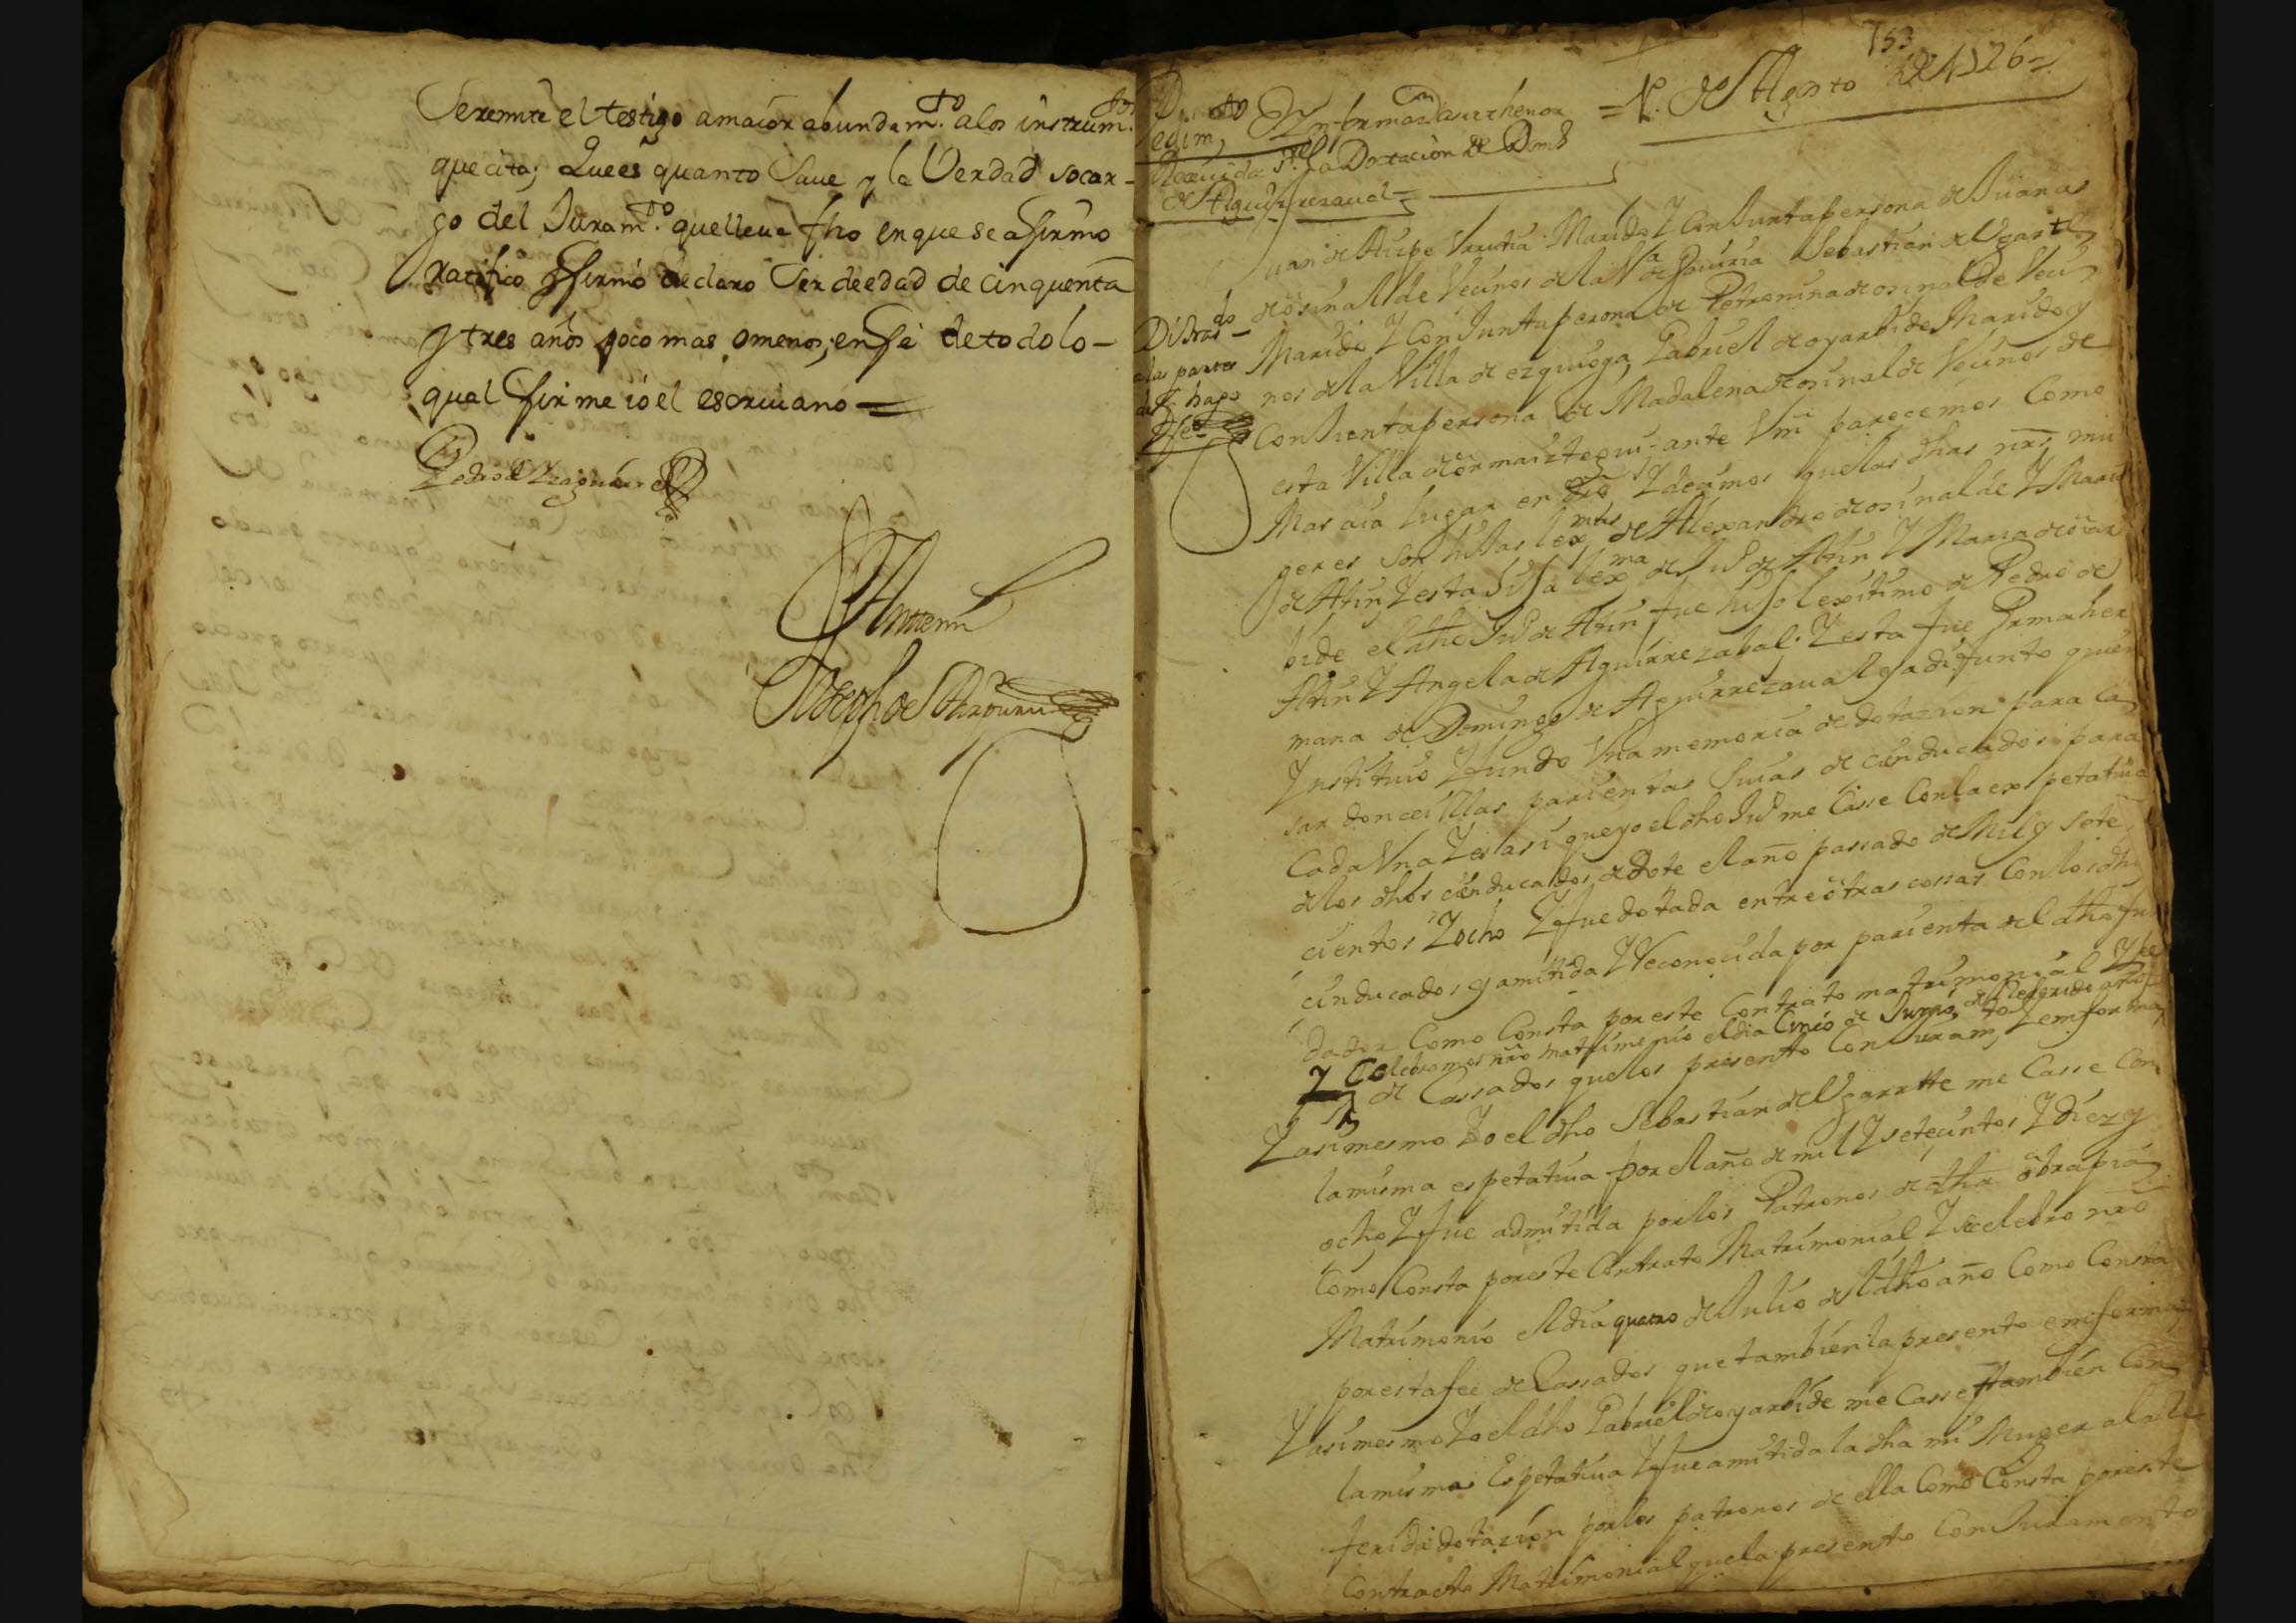 Se remite el testigo a maior abundam.to a los instrum.tos
que cita; Que es quanto Saue y la Verdad so car-
go del Juram.to que lleua fho en que se afirmo
Ratifico y firmó declaro Ser de edad de cinquenta
y tres años poco mas, o menos; en fe de todo lo-
qual firme io el escriuano =
Pedro de Yzaguirre
Antemi
Joseph de
153
1. de Agosto de 1726 =
Ynformaz.on
Reciuida s.re la Dotacion de Dom.o
de Aguirrezaual =
Juan de Aizpe Vrrutia Marido Y Conjunta persona de Juana
de osinalde Vecinos de la V.a de Gauiria Sebastian de Vgarte
Marido Y Conjunta persona de Petronina de osinalde Veci
nos de la Villa de ezquioga, Gabriel de oyarbide Marido y
Conjunta persona de Madalena de osinalde Vecinos de
esta Villa de ormaiztegui ante Vm parecemos Como
Mas aia lugar en dro, Y decimos que las dhas nras mu
geres son hijas lexmas de Alexandro de osinalde Y Maria
de Atin Y esta hija lexma de Ju.o de Atin Y Maria de oiar
bide el dho Ju.o de Atin fue hijo lexitimo de Pedro de
Atin Y Angela de Aguirrezabal; Y esta fue Prma her
mana de Domingo de Aguirrezaual ya difunto quien
Ynstituio Y fundo Vna memoria de dotazion para Ca
sar doncellas parientas Suias de cien ducados para
Cada Vna Y es asi que yo el dho Ju.o me Casse Con la expetatiua
de los dhos cien ducados de dote el año passado de Mil y sete
cientos Y ocho Y fue dotada entre otras cossas Con los dhos
cien ducados y amitida Y Reconocida por parienta del dho fun
dador Como Consta por este Contrato matrimonial Y fee
Y Celebramos nro matrimonio el dia Cinco de Junio, del Referido año
de Cassados que los presento Con Juram.to Y en forma
Y asi mesmo Yo el dho Sebastian de Vgartte me Casse Con
la misma espetatiua por el año de mil Y setecientos Y diez y
ocho Y fue admitida por los Patronos de dha obra pia
Como Consta por este Contrato Matrimonial Y se celebro nro
Matrimonio el dia quatro de Julio del dho año Como Consta
por esta fee de Cassados que tambien la presento en forma
Y asi mesmo Yo el dho Gabriel de oyarbide me Casse tambien Con
la misma Espetatiua Y fue amitida la dha mi Muger a la Re
ferida dotazion por los patronos de ella Como Consta por este
Contracto Matrimonial que la presento Con Juramento
Di tras.do
a las partes
de Fhago
Dfeo